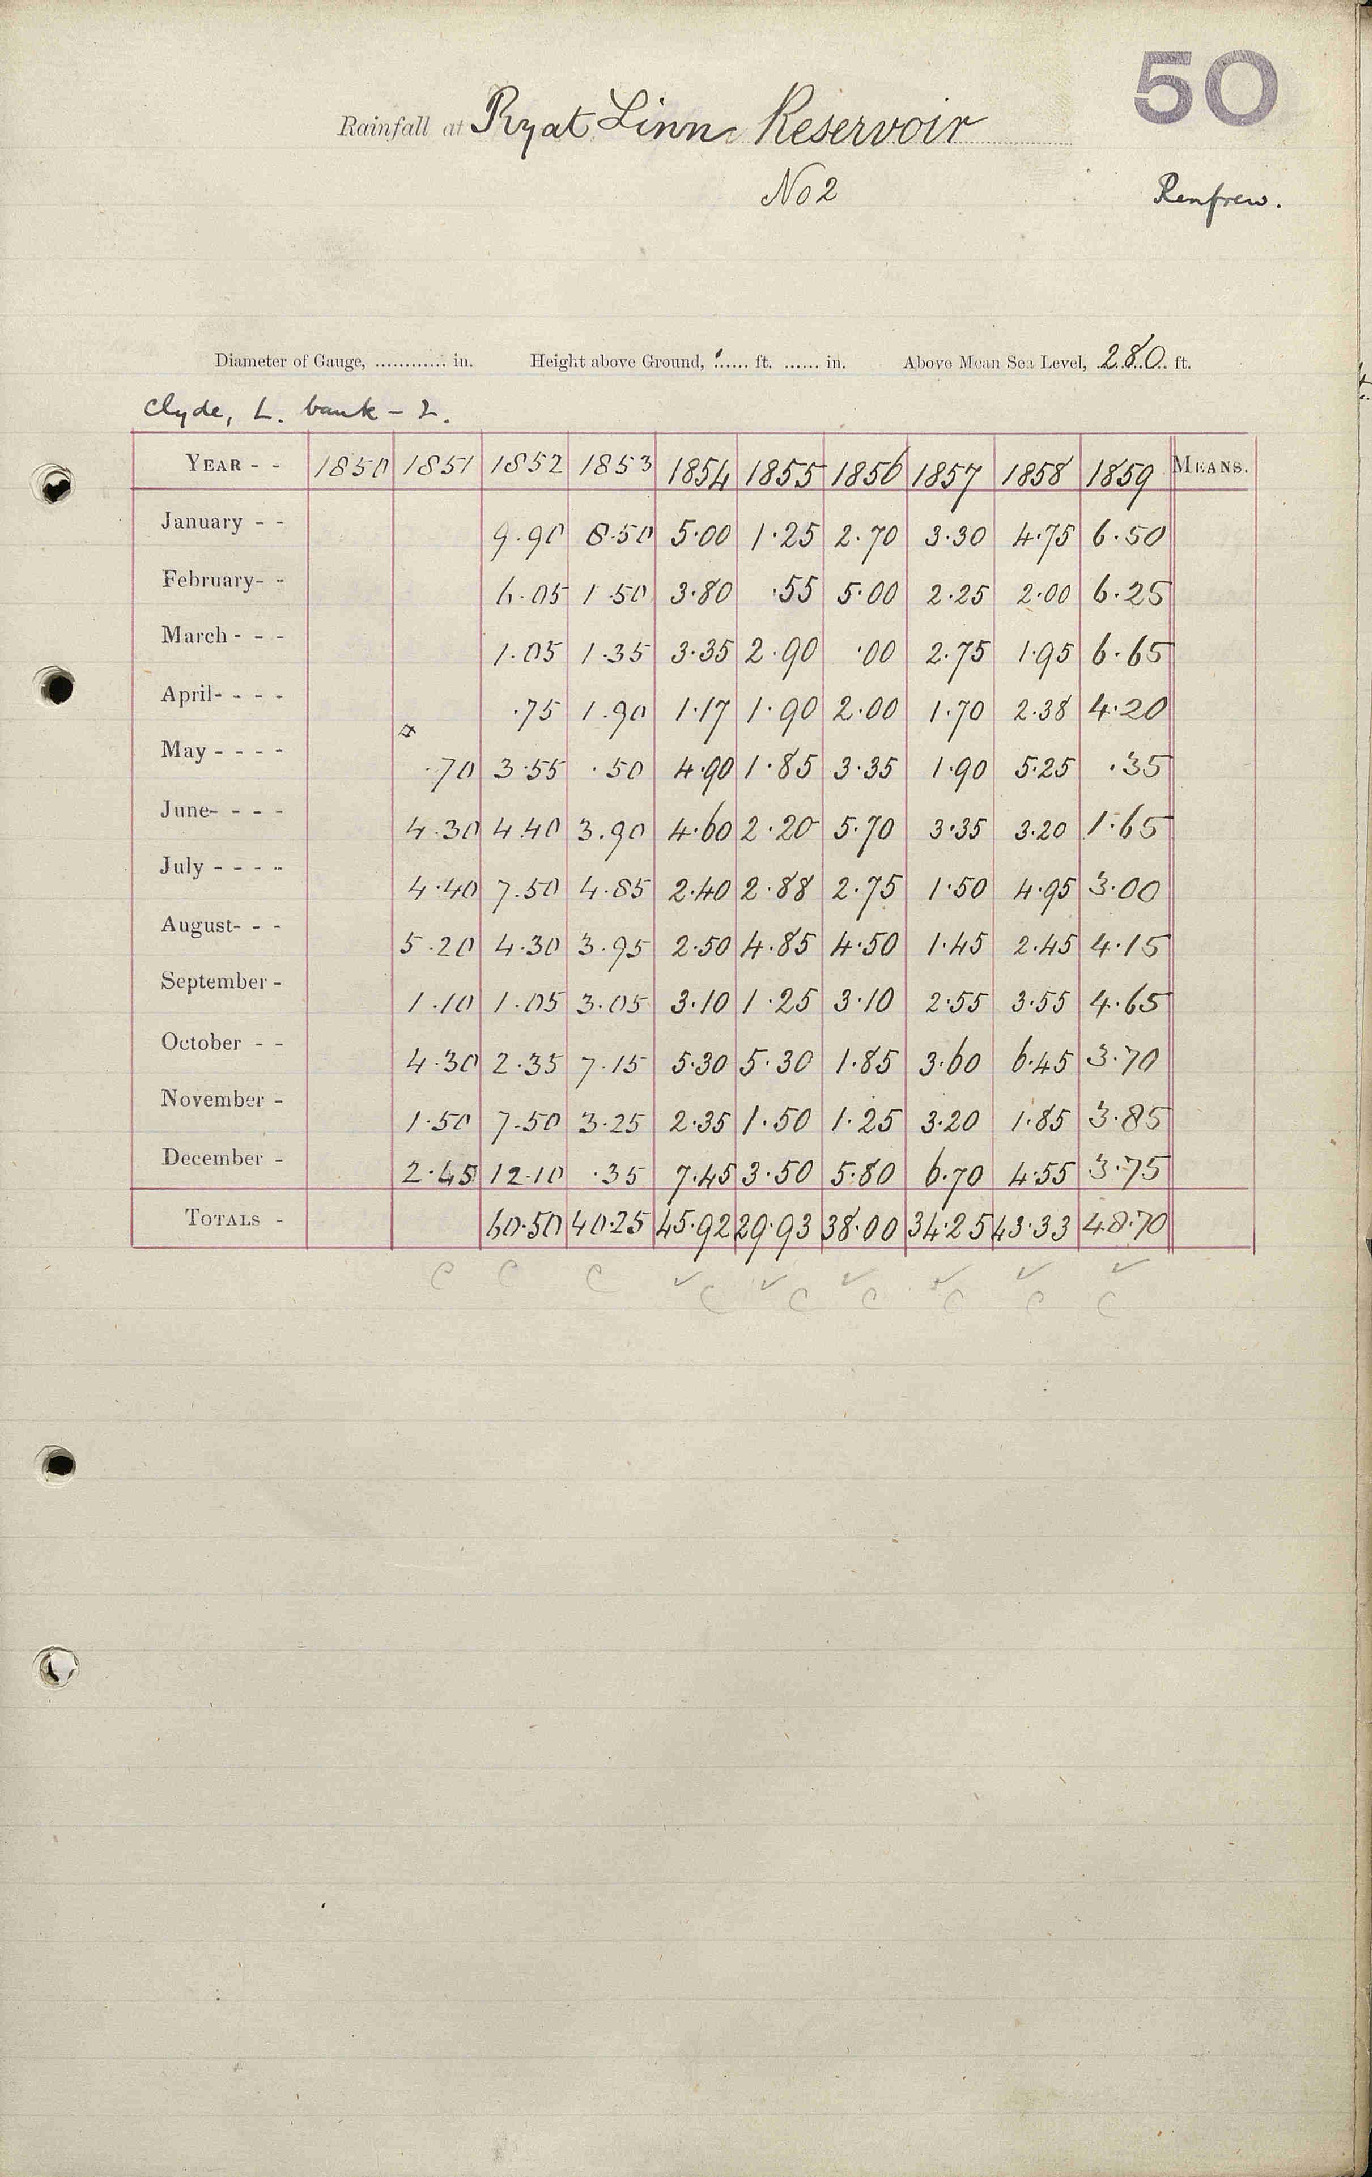 50
Rainfall at Ryat Linn Reservoir
No 2
Renfrew.
Diameter of Gauge, ............ in. Height above Ground, ...... ft. ...... in. Above Mean Sea Level, 280 ft.
Clyde, L. bank - 2.
YEAR - - 1850 1851 1852 1853 1854 1855 1856 1857 1858 1859 MEANS.
January - - 9.90 8.50 5.00 1.25 2.70 3.30 4.75 6.50
February- - 6.05 1.50 3.80 .55 5.00 2.25 2.00 6.25
March - - - 1.05 1.35 3.35 2.90 .00 2.75 1.95 6.65
April- - - - .75 1.90 1.17 1.90 2.00 1.70 2.38 4.20
May - - - - .70 3.55 .50 4.90 1.85 3.35 1.90 5.25 .35
June- - - - 4.30 4.40 3.90 4.60 2.20 5.70 3.35 3.20 1.65
July - - - - 4.40 7.50 4.85 2.40 2.88 2.75 1.50 4.95 3.00
August- - - 5.20 4.30 3.95 2.50 4.85 4.50 1.45 2.45 4.15
September - 1.10 1.05 3.05 3.10 1.25 3.10 2.55 3.55 4.65
October - - 4.30 2.35 7.15 5.30 5.30 1.85 3.60 6.45 3.70
November - 1.50 7.50 3.25 2.35 1.50 1.25 3.20 1.85 3.85
December - 2.45 12.10 .35 7.45 3.50 5.80 6.70 4.55 3.75
TOTALS - 60.50 40.25 45.92 29.93 38.00 34.25 43.33 48.70
C C C ✓C ✓C ✓C ✓C ✓C ✓C